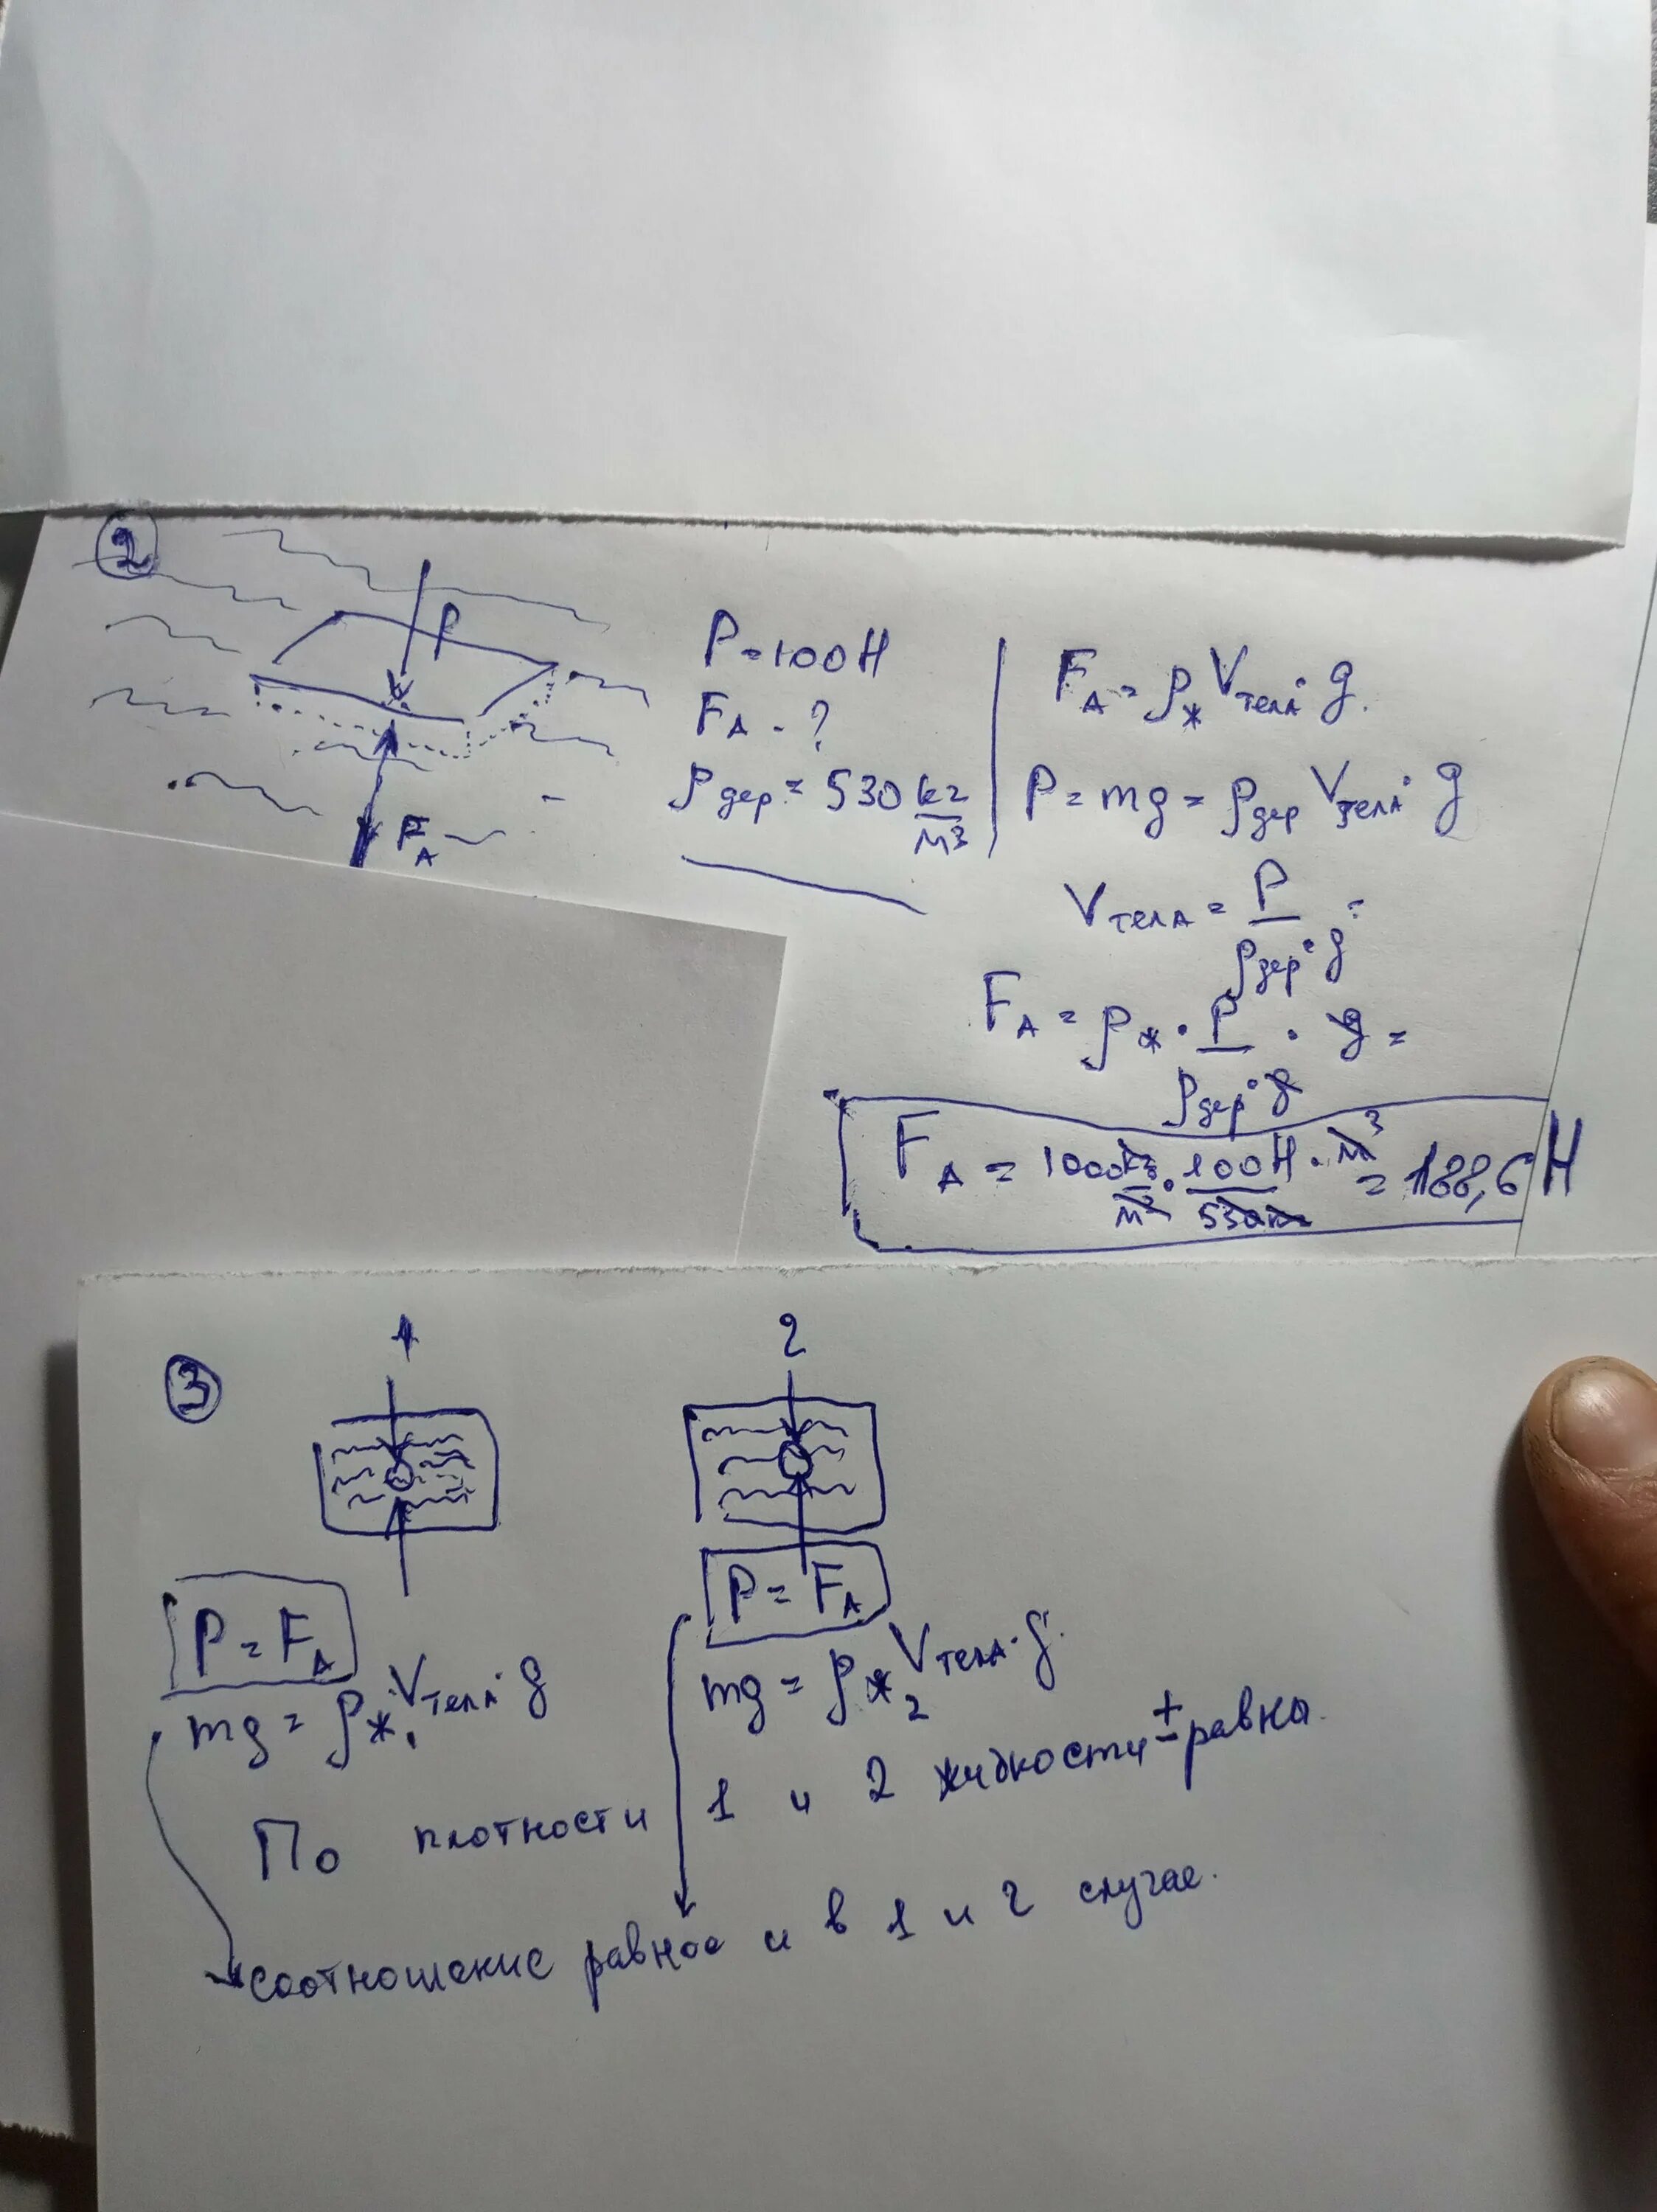 2
P
F_A
P = 100 Н
F_A - ?
ρ_дер = 530 кг/м³
F_A = ρ_ж V_тела · g.
P = mg = ρ_дер V_тела · g
V_тела = P / ρ_дер · g =
F_A = ρ_ж · P / ρ_дер · g · g =
F_A = 1000 кг/м³ · 100 Н · м³ / 530 кг = 188,6 Н
3
1 2
P = F_A P = F_A
mg = ρ_ж₁ · V_тела · g mg = ρ_ж₂ V_тела · g.
По плотности 1 и 2 жидкости ± равны.
соотношение равное и в 1 и 2 случае.